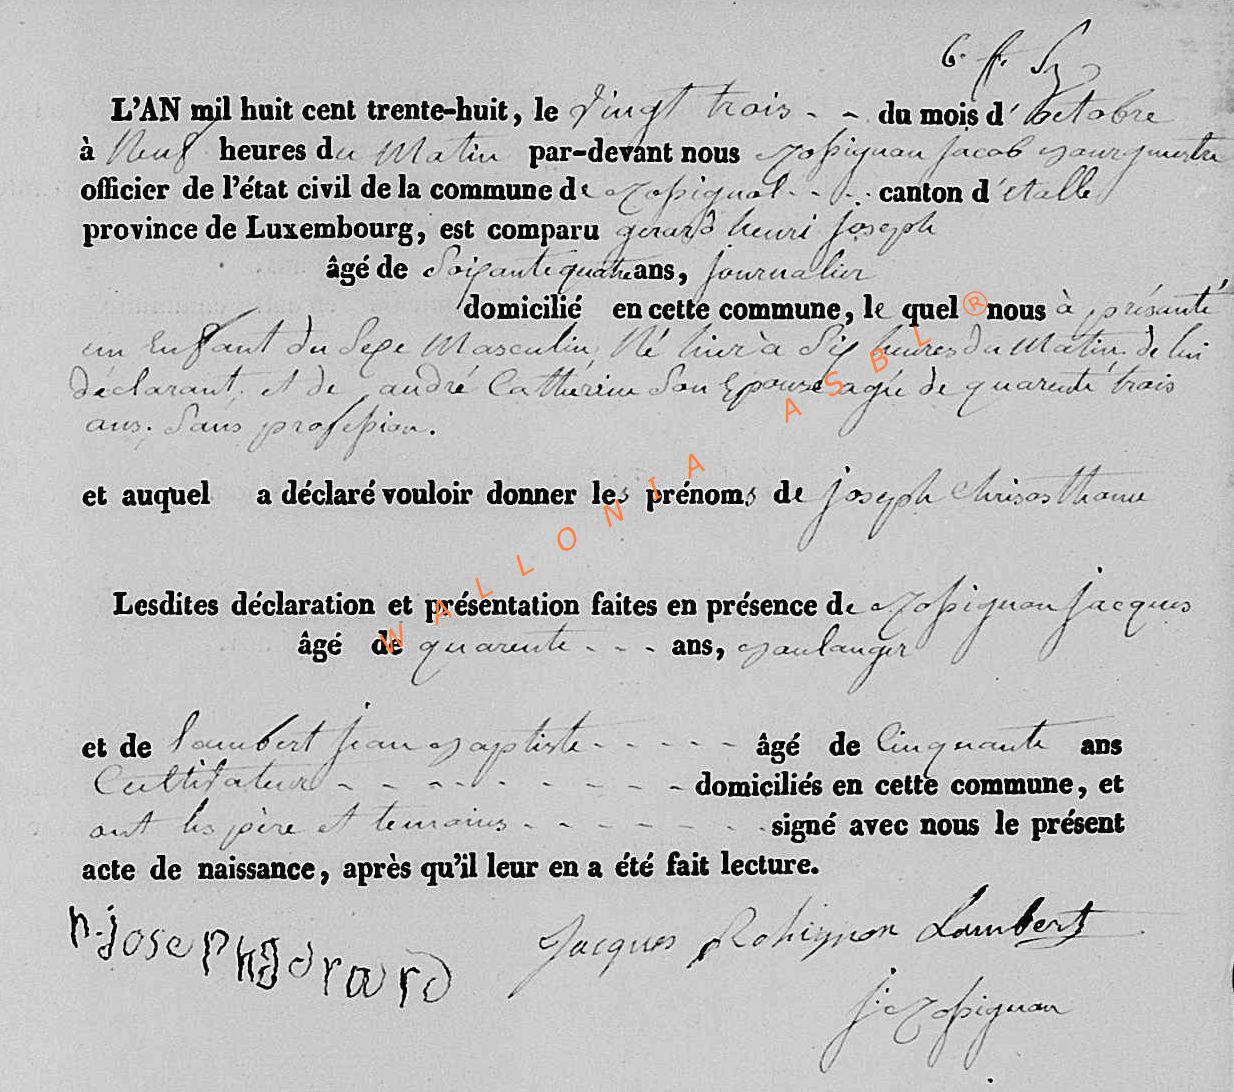 L'AN mil huit cent trente-huit, le Vingt trois - - du mois d'octobre
à Neuf heures du Matin par-devant nous Rossignon Jacob Bourgmestre
officier de l'état civil de la commune de Rossignol - - - canton d'etalle
province de Luxembourg, est comparu gerard henri joseph
âgé de Soixante quatre ans, journalier
domicilié en cette commune, le quel nous à présenté
un Enfant du Sexe Masculin, Né hier à Six heures du Matin. de lui
déclarant. et de andré Cathérine Son Epouse agée de quarente trois
ans. Sans profession.
et auquel a déclaré vouloir donner les prénoms de joseph Chrisosthome
Lesdites déclaration et présentation faites en présence de Rossignon jacques
âgé de quarente - - - ans, Boulanger
et de Lambert jean Baptiste - - - - - âgé de Cinquante ans
Cultivateur - - - - - - - - - domiciliés en cette commune, et
ont les père et temoins - - - - - - - signé avec nous le présent
acte de naissance, après qu'il leur en a été fait lecture.
h. joseph gerard
Jacques Rohignon Lambert
j: Rossignon
WALLONIA ASBL ®